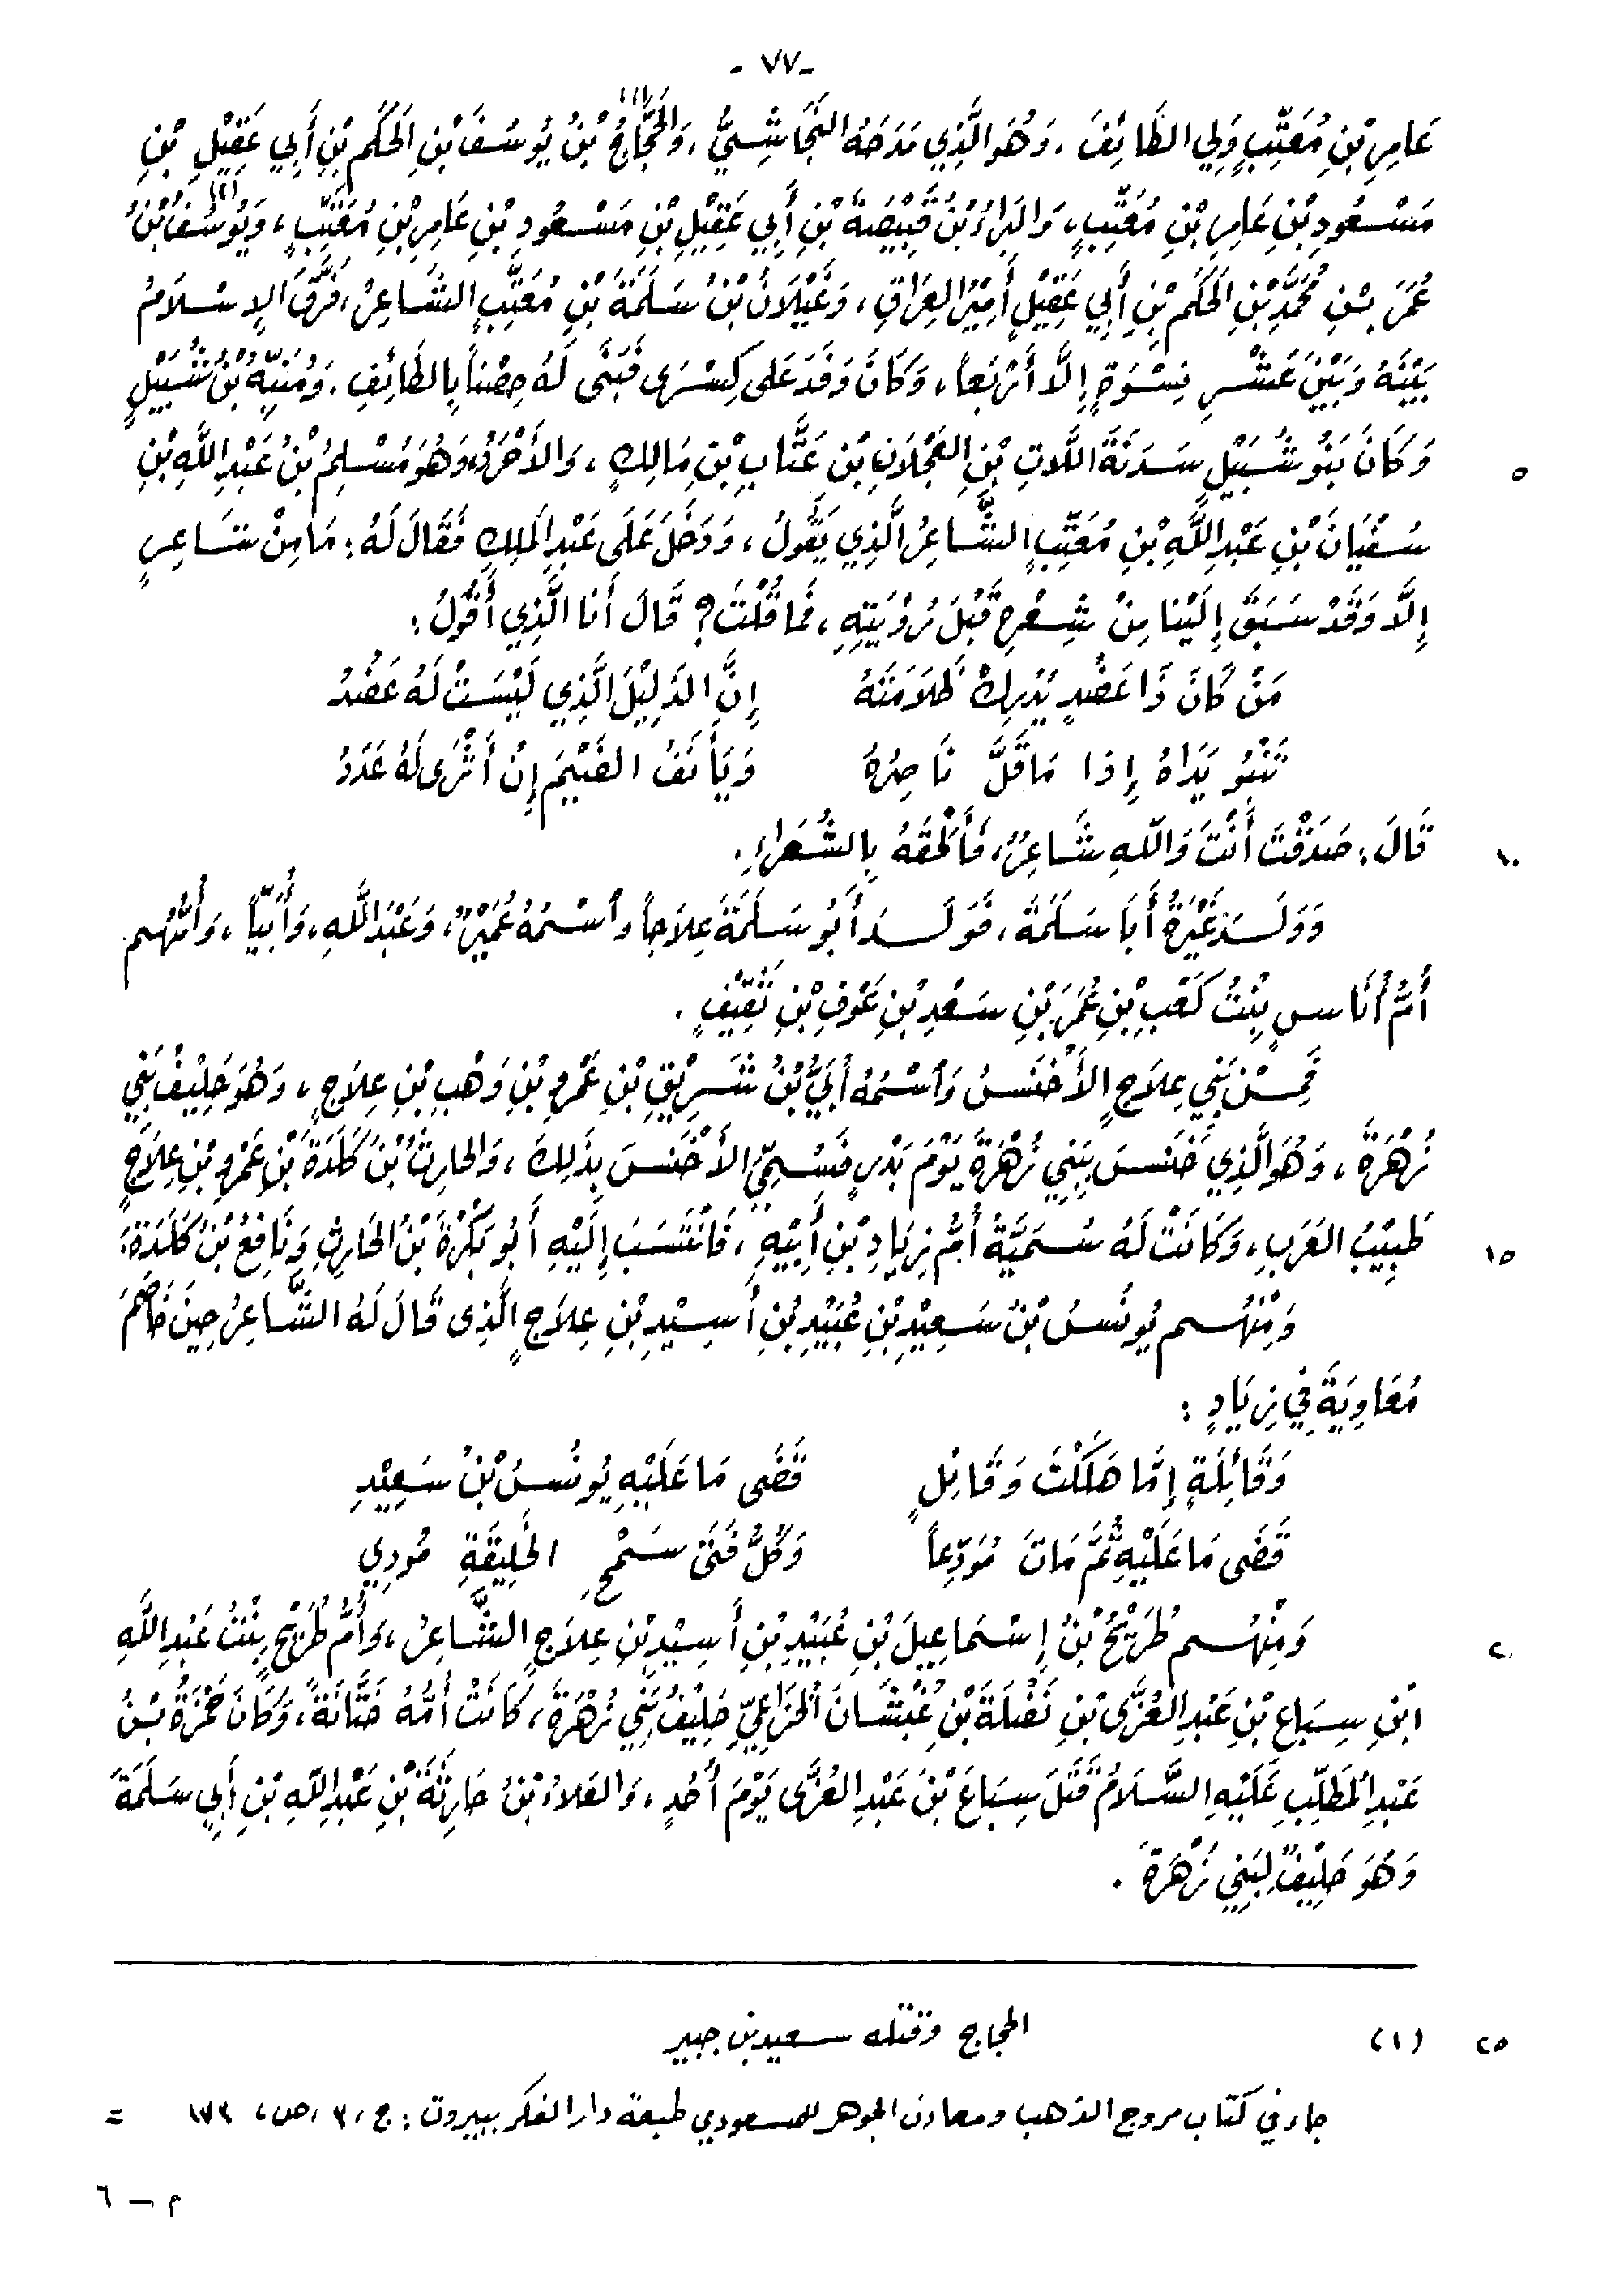 - ٧٧ -
عَامِرِ بْنِ مُعَتِّبٍ وَلِي الطَّائِفَ، وَهُوَ الَّذِي مَدَحَهُ النَّجَاشِيُّ، وَالْحَجَّاجُ (١) بْنُ يُوسُفَ بْنِ الْحَكَمِ بْنِ أَبِي عَقِيْلِ بْنِ
مَسْعُودِ بْنِ عَامِرِ بْنِ مُعَتِّبٍ، وَالبَرَاءُ بْنُ قَبِيْصَةَ بْنِ أَبِي عَقِيْلِ بْنِ مَسْعُودِ بْنِ عَامِرِ بْنِ مُعَتِّبٍ، وَيُوسُفُ (٢) بْنُ
عُمَرَ بْنِ مُحَمَّدِ بْنِ الْحَكَمِ بْنِ أَبِي عَقِيْلٍ أَمِيْرُ العِرَاقِ، وَغَيْلَانُ بْنُ سَلَمَةَ بْنِ مُعَتِّبٍ الشَّاعِرُ، فَرَّقَ الإِسْلَامُ
بَيْنَهُ وَبَيْنَ عَشْرِ نِسْوَةٍ إِلَّا أَرْبَعاً، وَكَانَ وَفَدَ عَلَى كِسْرَى فَبَنَى لَهُ حِصْناً بِالطَّائِفِ. وَمُنَبِّهُ بْنُ شُبَيْلٍ
وَكَانَ بَنُو شُبَيْلٍ سَدَنَةَ اللَّاتِ بْنِ العَجْلَانِ بْنِ عَتَّابِ بْنِ مَالِكٍ، وَالأَجْرَدُ، وَهُوَ مُسْلِمُ بْنُ عَبْدِ اللَّهِ بْنِ
٥
سُفْيَانَ بْنِ عَبْدِ اللَّهِ بْنِ مُعَتِّبٍ الشَّاعِرُ الَّذِي يَقُولُ، وَدَخَلَ عَلَى عَبْدِ المَلِكِ فَقَالَ لَهُ: مَا مِنْ شَاعِرٍ
إِلَّا وَقَدْ سَبَقَ إِلَيْنَا مِنْ شِعْرِهِ قَبْلَ رُؤْيَتِهِ، فَمَا قُلْتَ؟ قَالَ أَنَا الَّذِي أَقُولُ:
مَنْ كَانَ ذَا عَضُدٍ يُدْرِكْ ظَلَامَتَهُ إِنَّ الذَلِيْلَ الَّذِي لَيْسَتْ لَهُ عَضُدُ
تَنْبُو يَدَاهُ إِذا مَا قَلَّ نَاصِرُهُ وَيَأْنَفُ الضَيْمَ إِنْ أَثْرَى لَهُ عَدَدُ
قَالَ: صَدَقْتَ أَنْتَ وَاللّهِ شَاعِرٌ، فَأَلْحَقَهُ بِالشُعَرَاءِ.
١٠
وَوَلَدَ غَيْرَةُ أَبَا سَلَمَةَ، فَوَلَدَ أَبُو سَلَمَةَ عِلَاجاً وٱسْمُهُ عُمَيْرٌ، وَعَبْدَ اللَّهِ، وَأُبَيّاً، وَأُمُّهُم
أُمُّ أُنَاسٍ بِنْتُ كَعْبِ بْنِ عُمَرَ بْنِ سَعْدِ بْنِ عَوْفِ بْنِ ثَقِيْفٍ.
فَمِنْ بَنِي عِلَاجٍ الأَخْنَسُ وَٱسْمُهُ أُبَيُّ بْنُ شَرِيْقِ بْنِ عَمْرِو بْنِ وَهْبِ بْنِ عِلَاجٍ، وَهُوَ حَلِيْفُ بَنِي
زُهْرَةَ، وَهُوَ الَّذِي خَنَسَ بِبَنِي زُهْرَةَ يَوْمَ بَدْرٍ فَسُمِّيَ الأَخْنَسَ بِذَلِكَ، وَالحَارِثُ بْنُ كَلَدَةَ بْنِ عَمْرِو بْنِ عِلَاجٍ
طَبِيْبُ العَرَبِ، وَكَانَتْ لَهُ سُمَيَّةُ أُمُّ زِيَادِ بْنِ أَبِيْهِ، فَانْتَسَبَ إِلَيْهِ أَبُو بَكْرَةَ بْنُ الْحَارِثِ وَنَافِعُ بْنُ كَلَدَةَ.
١٥
وَمِنْهُم يُونُسُ بْنُ سَعِيْدِ بْنِ عُبَيْدِ بْنِ أُسِيْدِ بْنِ عِلَاجٍ الَّذِى قَالَ لَهُ الشَّاعِرُ حِيْنَ خَاصَمَ
مُعَاوِيَةَ فِي زِيَادٍ:
وَقَائِلَةٍ إِمَّا هَلَكْتَ وَقَائِلٍ قَضَى مَا عَلَيْهِ يُونُسُ بْنُ سَعِيْدِ
قَضَى مَا عَلَيْهِ ثُمَّ مَاتَ مُوَدِّعاً وَكُلُّ فَتَىً سَمْحِ الْخَلِيْقَةِ مُودِي
وَمِنْهُم طُرَيْحُ بْنُ إِسْمَاعِيلَ بْنِ عُبَيْدِ بْنِ أَسِيْدِ بْنِ عِلَاجٍ الشَّاعِرُ، وَأُمُّ طُرَيْحٍ بِنْتُ عَبْدِ اللَّهِ
٢٠
ابْنِ سِبَاعِ بْنِ عَبْدِ العُزَّى بْنِ نَضْلَةَ بْنِ غُبْشَانَ الْخُزَاعِيِّ حَلِيْفُ بَنِي زُهْرَةَ، كَانَتْ أُمُّهُ خَتَّانَةً، وَكَانَ حَمْزَةُ بْنُ
عَبْدِ الْمُطَّلِبِ عَلَيْهِ السَّلَامُ قَتَلَ سِبَاعَ بْنَ عَبْدِ العُزَّى يَوْمَ أُحُدٍ، وَالعَلَاءُ بْنُ حَارِثَةَ بْنِ عَبْدِ اللّهِ بْنِ أَبِي سَلَمَةَ
وَهُوَ حَلِيْفٌ لِبَنِي زُهْرَةَ.
(١) الحجاج وقتله سعيد بن جبير
٢٥
جاء في كتاب مروج الذهب ومعادن الجوهر للمسعودي طبعة دار الفكر ببيروت: ج، ٣، ص، ١٧٣ =
م – ٦